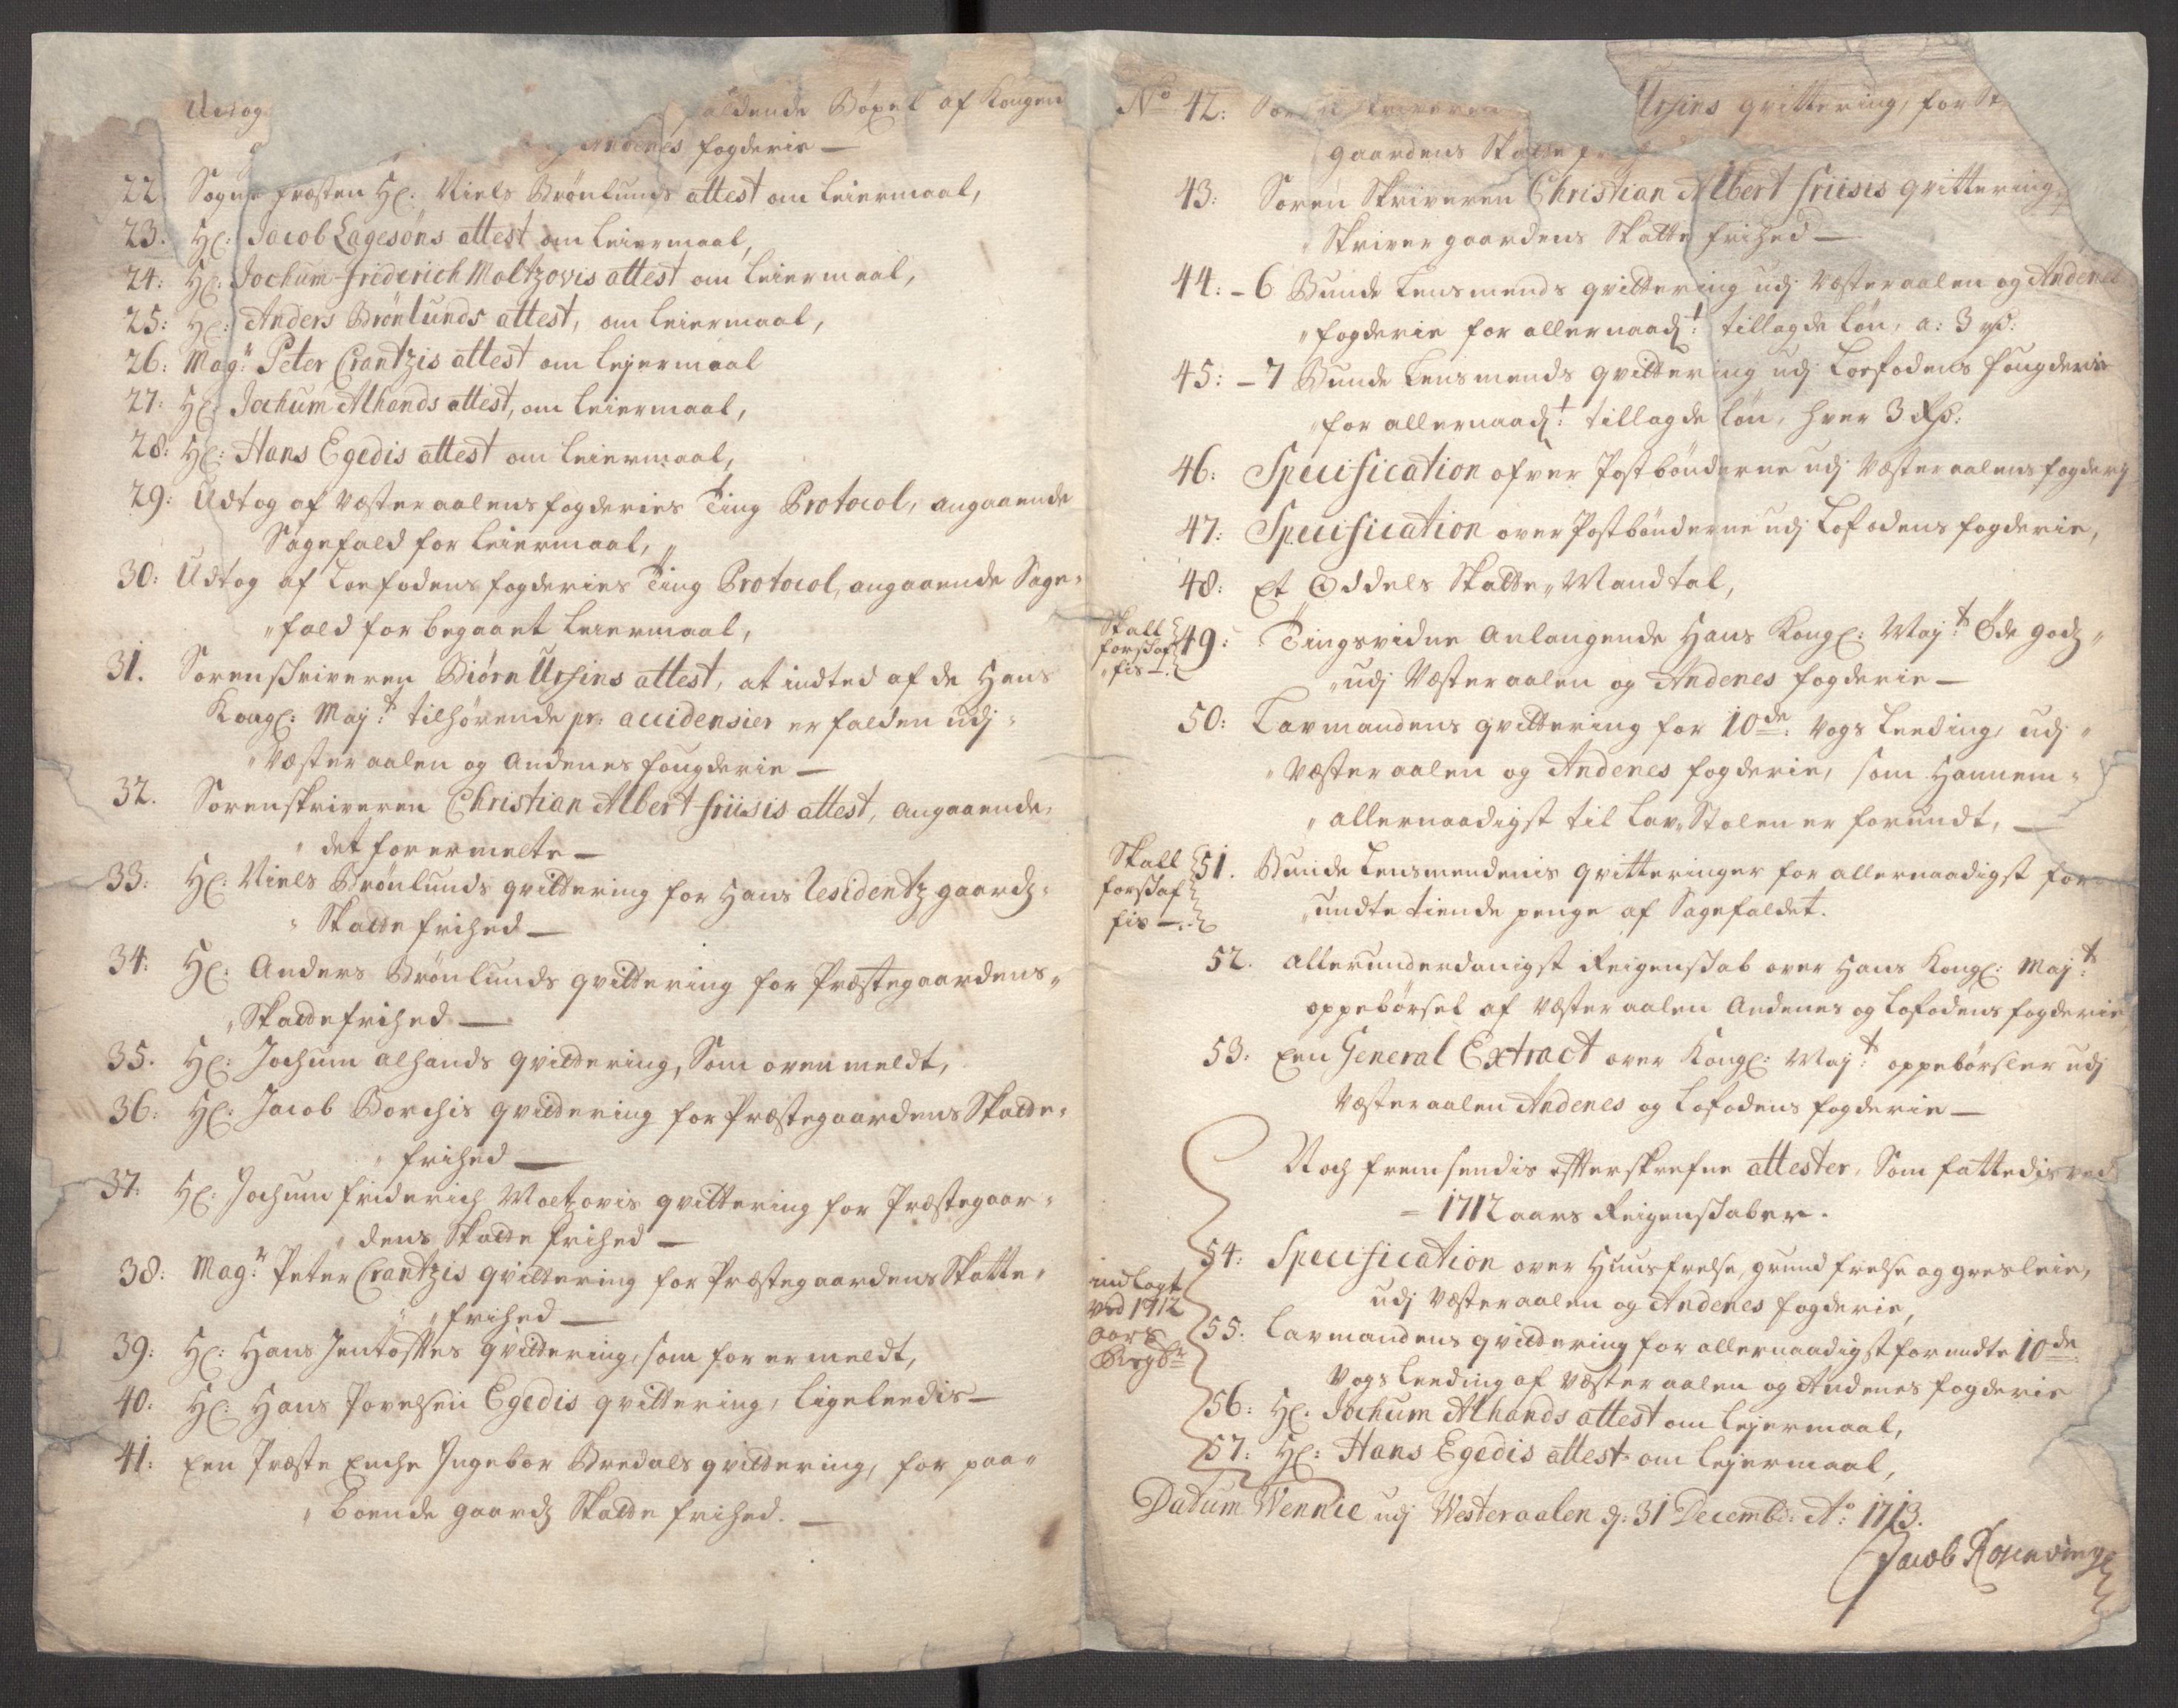 Udtog aldende Böxel af Kongen
Andenes fogderie —
22. Sogne præsten Hr: Niels Brönlunds attest om leiermaal,
23. Hr: Jacob Lagesöns attest om leiermaal,
24: Hr: Jochum friderich Moltzovis attest om leiermaal,
25: Hr: Anders Brönlunds attest, om leiermaal,
26: Magr: Peter Crantzis attest om lejermaal
27: Hr: Jochum Alhands attest, om leiermaal,
28: Hr: Hans Egedis attest om leiermaal,
29: Udtog af Væsteraalens fogderies Ting Protocol, angaaende
Sagefald for leiermaal,
30: Udtog af Loefodens fogderies Ting Protocol, angaaende Sage-
"fald for begaaet leiermaal,
31. Sorenskriveren Biörn Ursins attest, at indted af de Hans
Kongl: Maj:t tilhörende pr: accidensier er falden udj-
"Væsteraalen og Andenes fougderie —
32. Sorenskriveren Christian Albert friisis attest, angaaende,
" det forermelte —
33: Hr: Niels Brönlunds qvittering for Hans Residentz gaards-
" Skatte frihed —
34: Hr: Anders Brönlunds qvittering for Præstegaardens"
"Skatte frihed —
35. Hr: Jochum alhands qvittering, Som oven meldt,
36: Hr: Jacob Borchis qvittering for Præstegaardens Skatte-
" frihed —
37: Hr: Jochum friderich Moltzovis qvittering for Præstegaar-
" dens Skatte frihed —
38: Mag:r Peter Crantzis qvittering for Præstegaardens Skatte"
" frihed —
39: Hr: Hans Jentoftes qvittering, som forermeldt,
40: Hr: Hans Povelsen Egedis qvittering, ligeleedis —
41: Een Præste Enche Ingebor Bredals qvittering, for paa"
" boende gaards Skatte frihed. —
No 42: Soren Skriveren Ursins qvittering, for
gaardens Skatte
43: Soren Skriveren Christian Albert friisis qvittering
"Skriver gaardens Skatte frihed —
44: - 6 Bunde Lensmends qvittering udj Væsteraalen og Andenes
"fogderie for allernaadt: tillagde lön, a: 3 rd:
45: - 7 Bunde Lensmends qvittering udj Loefodens fougderie
"for allernaadt: tillagde lön, hver 3 Rd:
46: Specification ofver Postbönderne udj Væsteraalens fogderj
47: Specification over Postbönderne udj Lofodens fogderie,
48: Et Oddels Skatte, Mandtal,
Skall
forskaf
"fis —.
49: Tingsvidne Anlangende Hans Kongl: Maj:t Öde gods"
"udj Væsteraalen og Andenes fogderie —
50: Lavmandens qvittering for 10de: Vogs Leeding, udj"
"Væsteraalen og Andenes fogderie, som Hannem-
"allernaadigst til Lav, Stolen er forundt, —
Skall
forskaf
fis —.
51. Bunde Lensmendenis qvitteringer for allernaadigst for-
"undte tiende penge af Sagefaldet.
52. Allerunderdanigst Reigenskab over Hans Kongl: Maj:t
oppebörsel af Væsteraalen Andenes og Lofodens fogderie
53: Een General Extract over Kongl: Maj:t oppebörsler udj
Væsteraalen Andenes og Lofodens fogderie —
Noch fremsendis efterskrefne attester, Som fattedis ved
- 1712 aars Reigenskaber.
54: Specification over Huusfrelse, grundfrelse og gresleie,
udj Væsteraalen og Andenes fogderie,
indlagt
ved 1712
aars
Regskr
55: Lavmandens qvittering for allernaadigst forundte 10de
Vogs leeding af Væsteraalen og Andenes fogderie
56: Hr: Jochum Alhands attest om lejermaal,
57: Hr: Hans Egedis attest om lejermaal,
Datum Wennie udj Westeraalen d: 31 Decembr: Ao: 1713.
Jacob Rosenving